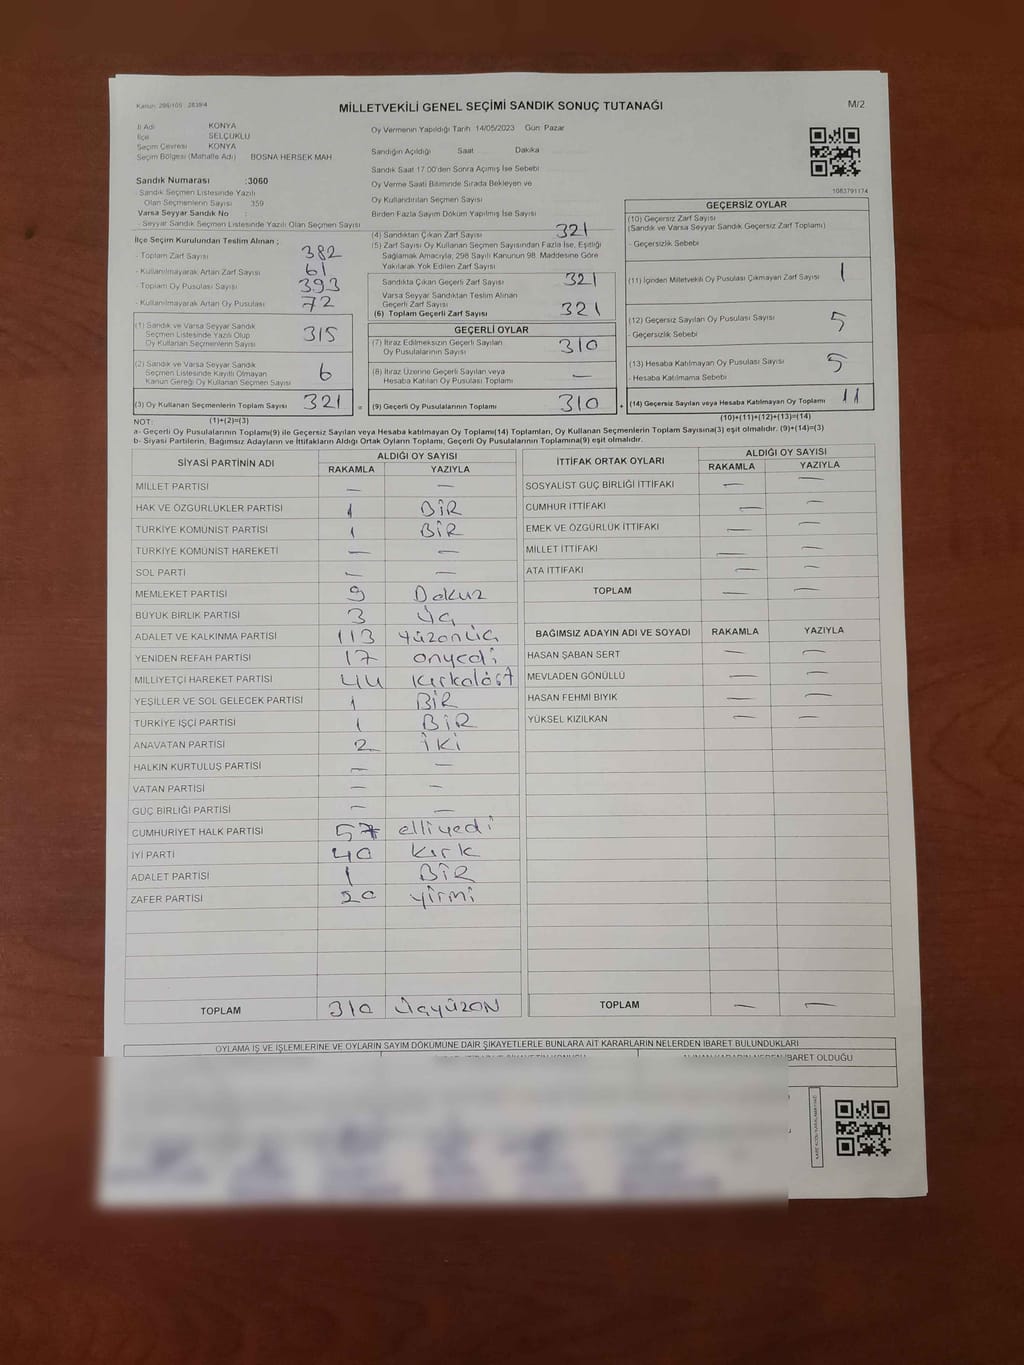 Kanun: 298/105 - 2839/4
MİLLETVEKİLİ GENEL SEÇİMİ SANDIK SONUÇ TUTANAĞI
M/2
İl Adı KONYA
İlçe SELÇUKLU
Seçim Çevresi KONYA
Seçim Bölgesi (Mahalle Adı) BOSNA HERSEK MAH.
Sandık Numarası :3060
- Sandık Seçmen Listesinde Yazılı
Olan Seçmenlerin Sayısı 359
Varsa Seyyar Sandık No :
- Seyyar Sandık Seçmen Listesinde Yazılı Olan Seçmen Sayısı
İlçe Seçim Kurulundan Teslim Alınan ;
- Toplam Zarf Sayısı 382
- Kullanılmayarak Artan Zarf Sayısı 61
- Toplam Oy Pusulası Sayısı 393
- Kullanılmayarak Artan Oy Pusulası 72
(1) Sandık ve Varsa Seyyar Sandık
Seçmen Listesinde Yazılı Olup
Oy Kullanan Seçmenlerin Sayısı 315
(2) Sandık ve Varsa Seyyar Sandık
Seçmen Listesinde Kayıtlı Olmayan
Kanun Gereği Oy Kullanan Seçmen Sayısı 6
(3) Oy Kullanan Seçmenlerin Toplam Sayısı 321
Oy Vermenin Yapıldığı Tarih 14/05/2023 Gün: Pazar
Sandığın Açıldığı Saat Dakika
Sandık Saat 17.00'den Sonra Açımış İse Sebebi
Oy Verme Saati Bitiminde Sırada Bekleyen ve
Oy Kullandırılan Seçmen Sayısı
Birden Fazla Sayım Döküm Yapılmış İse Sayısı
(4) Sandıktan Çıkan Zarf Sayısı 321
(5) Zarf Sayısı Oy Kullanan Seçmen Sayısından Fazla İse, Eşitliği
Sağlamak Amacıyla, 298 Sayılı Kanunun 98. Maddesine Göre
Yakılarak Yok Edilen Zarf Sayısı
Sandıkta Çıkan Geçerli Zarf Sayısı 321
Varsa Seyyar Sandıktan Teslim Alınan
Geçerli Zarf Sayısı
(6) Toplam Geçerli Zarf Sayısı 321
GEÇERLİ OYLAR
(7) İtiraz Edilmeksizin Geçerli Sayılan
Oy Pusulalarının Sayısı 310
(8) İtiraz Üzerine Geçerli Sayılan veya
Hesaba Katılan Oy Pusulası Toplamı —
= (9) Geçerli Oy Pusulalarının Toplamı 310
1083791174
GEÇERSİZ OYLAR
(10) Geçersiz Zarf Sayısı
(Sandık ve Varsa Seyyar Sandık Geçersiz Zarf Toplamı)
- Geçersizlik Sebebi
(11) İçinden Milletvekili Oy Pusulası Çıkmayan Zarf Sayısı 1
(12) Geçersiz Sayılan Oy Pusulası Sayısı 5
- Geçersizlik Sebebi
(13) Hesaba Katılmayan Oy Pusulası Sayısı 5
- Hesaba Katılmama Sebebi
+ (14) Geçersiz Sayılan veya Hesaba Katılmayan Oy Toplamı 11
NOT: (1)+(2)=(3)
(10)+(11)+(12)+(13)=(14)
a- Geçerli Oy Pusulalarının Toplamı(9) ile Geçersiz Sayılan veya Hesaba katılmayan Oy Toplamı(14) Toplamları, Oy Kullanan Seçmenlerin Toplam Sayısına(3) eşit olmalıdır. (9)+(14)=(3)
b- Siyasi Partilerin, Bağımsız Adayların ve İttifakların Aldığı Ortak Oyların Toplamı, Geçerli Oy Pusulalarının Toplamına(9) eşit olmalıdır.
SİYASİ PARTİNİN ADI ALDIĞI OY SAYISI
RAKAMLA YAZIYLA
MİLLET PARTİSİ — —
HAK VE ÖZGÜRLÜKLER PARTİSİ 1 BİR
TÜRKİYE KOMÜNİST PARTİSİ 1 BİR
TÜRKİYE KOMÜNİST HAREKETİ — —
SOL PARTİ — —
MEMLEKET PARTİSİ 9 Dokuz
BÜYÜK BİRLİK PARTİSİ 3 Üç
ADALET VE KALKINMA PARTİSİ 113 Yüzonüç
YENİDEN REFAH PARTİSİ 17 onyedi
MİLLİYETÇİ HAREKET PARTİSİ 44
YEŞİLLER VE SOL GELECEK PARTİSİ 1 BİR
TÜRKİYE İŞÇİ PARTİSİ 1 BİR
ANAVATAN PARTİSİ 2 İKİ
HALKIN KURTULUŞ PARTİSİ — —
VATAN PARTİSİ — —
GÜÇ BİRLİĞİ PARTİSİ — —
CUMHURİYET HALK PARTİSİ 57 elliyedi
İYİ PARTİ 40 kırk
ADALET PARTİSİ 1 BİR
ZAFER PARTİSİ 20 yirmi
TOPLAM 310 ÜçyüzON
İTTİFAK ORTAK OYLARI ALDIĞI OY SAYISI
RAKAMLA YAZIYLA
SOSYALİST GÜÇ BİRLİĞİ İTTİFAKI — —
CUMHUR İTTİFAKI — —
EMEK VE ÖZGÜRLÜK İTTİFAKI — —
MİLLET İTTİFAKI — —
ATA İTTİFAKI — —
TOPLAM — —
BAĞIMSIZ ADAYIN ADI VE SOYADI RAKAMLA YAZIYLA
HASAN ŞABAN SERT — —
MEVLADEN GÖNÜLLÜ — —
HASAN FEHMİ BIYIK — —
YÜKSEL KIZILKAN — —
TOPLAM — —
OYLAMA İŞ VE İŞLEMLERİNE VE OYLARIN SAYIM DÖKÜMÜNE DAİR ŞİKAYETLERLE BUNLARA AİT KARARLARIN NELERDEN İBARET BULUNDUKLARI
ALINAN KARARIN NEDEN İBARET OLDUĞU